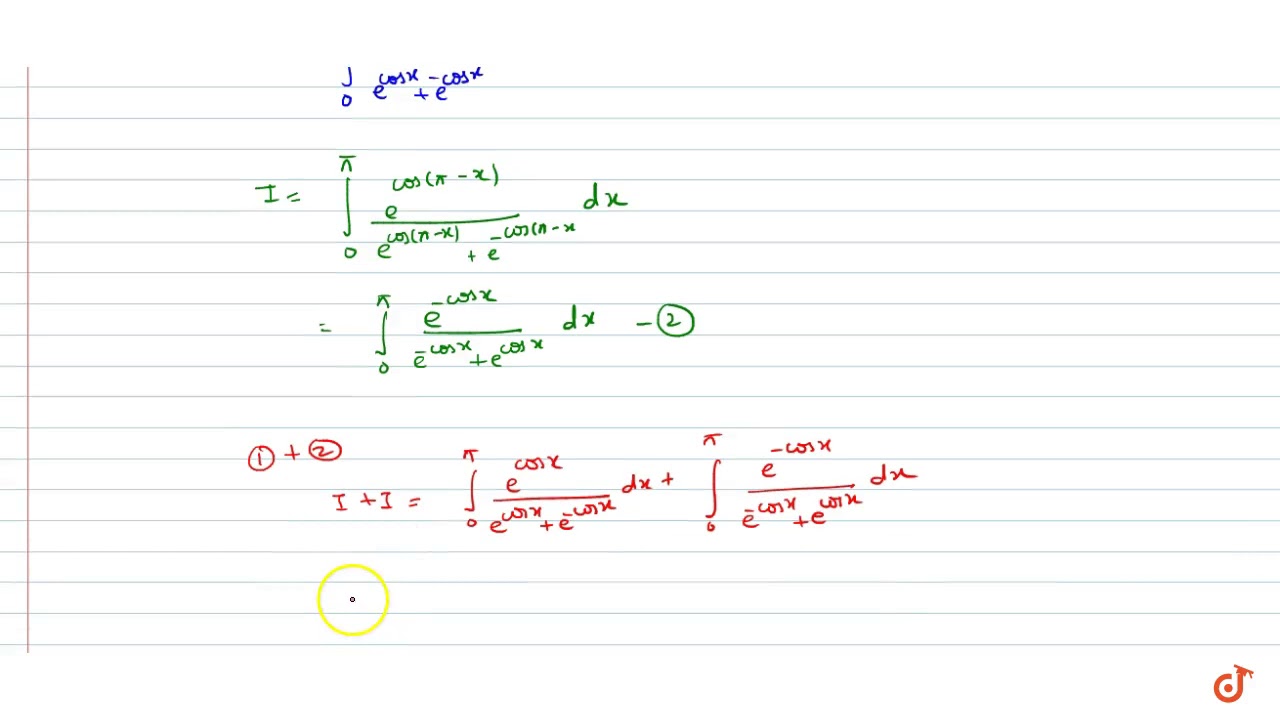 ∫₀ e^cosx + e^-cosx
I = ∫₀^π e^cos(π-x) / (e^cos(π-x) + e^-cos(π-x) dx
= ∫₀^π e^-cosx / (e^-cosx + e^cosx) dx - ②
① + ②
I + I = ∫₀^π e^cosx / (e^cosx + e^-cosx) dx + ∫₀^π e^-cosx / (e^-cosx + e^cosx) dx